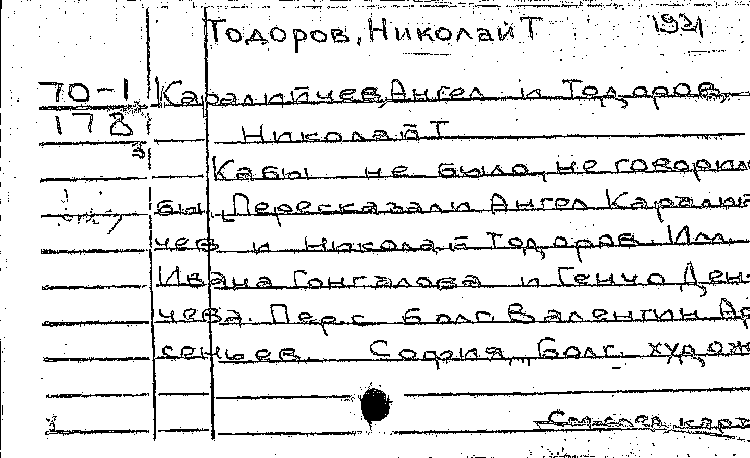 Тодоров, Николай Т 1921
70-1 Каралийчев, Ангел и Тодоров,
178 Николай Т
3 Кабы не было, не говорил
бы. Пересказали Ангел Каралий
чев и Николай Тодоров. Илл.
Ивана Гонгалова и Генчо Ден-
чева. Пер. с болг. Валентин Ар
сеньев. София, Болг. худож